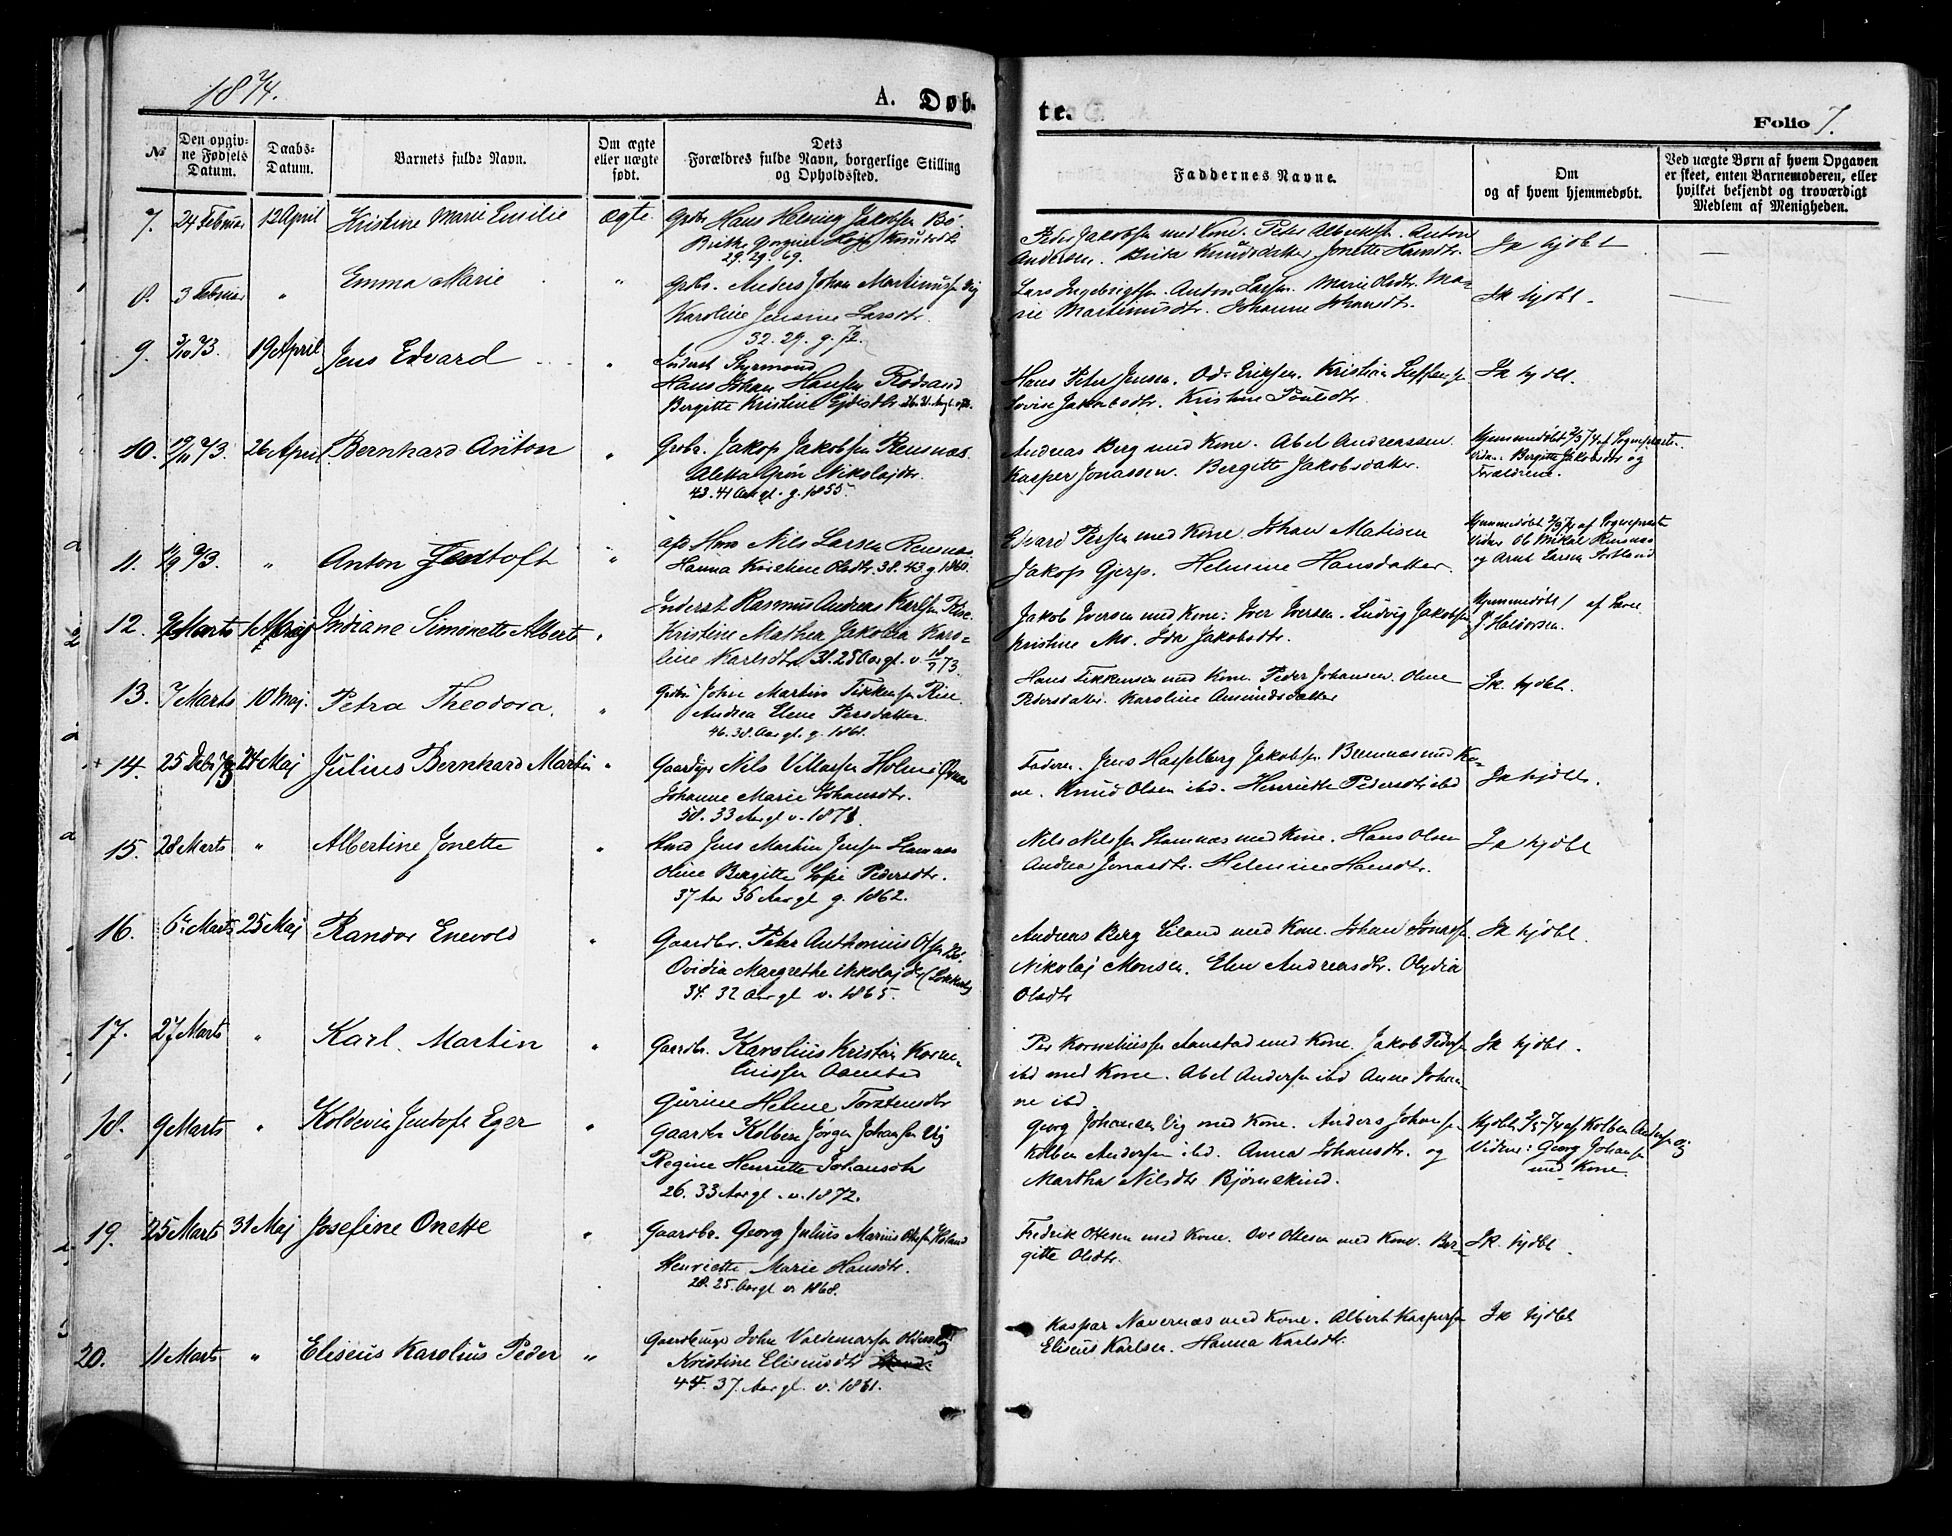 1874.
A. Døb-
te.
Folio 7.
№
Den opgiv-
ne Fødsels
Datum.
Daabs-
Datum.
Barnets fulde Navn.
Om ægte
eller uægte
født.
Dets
Forældres fulde Navn, borgerlige Stilling
og Opholdssted.
Faddernes Navne.
Om
og af hvem hjemmedøbt.
Ved uægte Børn af hvem Opgaven
er skeet, enten Barnemoderen, eller
hvilket bekjendt og troværdigt
Medlem af Menigheden.
7. 24 Februar 12 April Kristine Marie Emilie Ægte Hans Jakobsen Bø
29. 29. 69.
Peder Jakobsen med Kone. Peter Anton
Andersen. Knudsdatter Jonette Hansdtr. Ik hjdbt
8. 3 Februar " Emma Marie " Anders Johan Martinussen Vig
Karoline Jensine Larsdtr.
32. 29. g. 72.
Lars Ingebrigtsen. Anton Larsen. Marie Olsdtr. Ma-
rie Martinusdtr. Johanne Johansdtr. Ik hjdbt.
9. 3/10 73. 19 April Jens Edvard "
Hans Johan Hansen Rødsand
Bergitte Kristine
Hans Peter Jensen. Od. Eriksen. Kristian Steffensen
Lovise Jakobsdtr. Kristine Poulsdtr. Ik hjdbt.
10. 19/11 73. 26 April Bernhard Anton " Jakop Jakobsen Reusnæs
Nikolajdtr.
43. 41 Aar gl. g. 1855.
Andreas Berg med Kone. Abel Andreassen
Kasper Jonassen. Bergitte Jakobsdatter.
Hjemmedøbt af Sognepræst.
Bergitte Jakobsdtr og
Forældrene.
11. 73. " Anton Jentoft " Nils Larsen Reusnæs
Hanna Kristine Olsdtr. 38. 43 g 1860.
Edvard Persen med Kone. Johan Matisen
Jakop Gjerp. Helmine Hansdatter.
Hjemmedøbt af Sognepræst
Ol Mikal Reusnæs
og Arnt Larsen Sortland
12. 9 Marts Indiane Simonette Alberte " Inderst Rasmus Andreas Karlsen Rise
Kristine Mathea Jakobea Karo-
line Karlsdtr. 31. 25 Aar gl. v. 73.
Jakob Iversen med Kone. Iver Iversen. Ludvig Jakobsen
Kristine Mo. Ida Jakobsdtr.
Hjemmedøbt af
P. Haldorsen.
13. 7 Marts 10 Maj. Petra Theodora. " John Martin Tikkensen Rise.
Andrea Elene Persdatter.
46. 38. Aar gl. g. 1861.
Hans Tikkensen med Kone. Peder Johansen. Oline
Pedersdatter. Karoline Amundsdatter Ik. hjdbt.
14. 25 73 24 Maj Julius Bernhard Martin " Nils Villassen Holm
Johanne Marie Johansdtr.
50. 33 Aar gl v. 1873.
Faderen. Jens Hasselberg Jakobsen Bremnæs med Ko-
ne. Knud Olsen ibd. Henrikke Pedersdtr ibd Ik hjdbt.
15. 28 Marts " Albertine Jonette " Jens Martin Jensen Stamnæs
Oline Bergitte Sofie Pedersdtr.
37 Aar 36 Aar gl g. 1862.
Nels Nelssen Stamnæs med Kone. Hans Olsen
Andrea Jonasdtr. Helmine Hansdtr. Ik hjdbt
16. 6 Marts 25 Maj Randor Enevold " Gaardbr. Peter Anthonius Olsen Bø.
Ovidia Margrethe Nikolajdtr
34. 32 Aar gl v. 1865.
Andreas Berg Eiland med Kone. Johan Jonassen
Nikolaj Monsen. Elen Andreasdtr. Olydia
Olsdtr Ik hjdbt.
17. 27 Marts " Karl Martin " Gaardbr. Karolius Kristian Korne-
liussen Aanstad
Gurine Helene Torstensdtr
Per Korneliussen Aanstad med Kone. Jakob Pedersen
ibd med Kone. Abel Andersen ibd Anne Johan-
ne ibd Ik hjdbt.
18. 9 Marts " Koldevin Jentoft Eger " Gaardbr Kolben Jørgen Johansen Vig
Regine Henriette Johansdtr
26. 33 Aar gl. v. 1872.
Georg Johansen Vig med Kone. Anders Johansen
Kolben Andersen ibd. Anna Johansdtr. og
Martha Nilsdtr Bjørnskind.
Hjdbt af Kolben Andersen Vig
Vidner: Georg Johansen
med Kone.
19. 25 Marts 31 Maj Josefine Onette " Gaardbr. Georg Julius Marius
Henriette Marie Hansdtr.
28. 25. Aar gl v. 1868.
Fredrik Ottesen med Kone. Ove Ottesen med Kone. Ber-
gitte Olsdtr. Ik. hjdbt.
20. 11 Marts " Eliseus Karolius Peder " John Valdemarsen
Kristine Eliseusdtr
44. 37. Aar gl. v. 1861.
Kaspar Navernæs med Kone. Albert Kaspersen
Eliseus Karlsen. Hanna Karlsdtr. Ik hjdbt